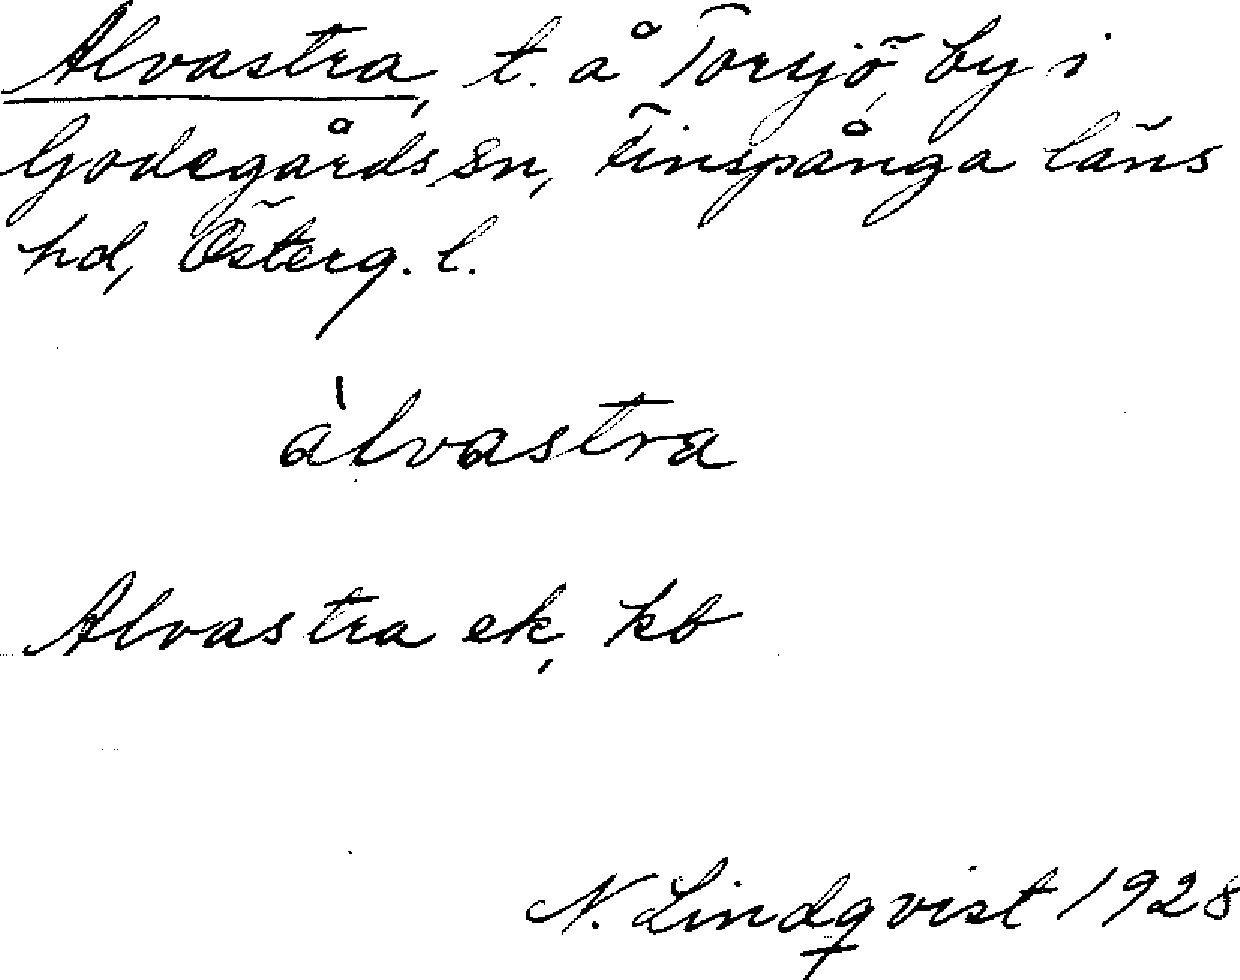 Alvastra, t. å Torsjö, by i
Godegårds sn, Finspånga läns
hd, Österg. l.
àlvastra
Alvastra ek, kb
N. Lindqvist 1928